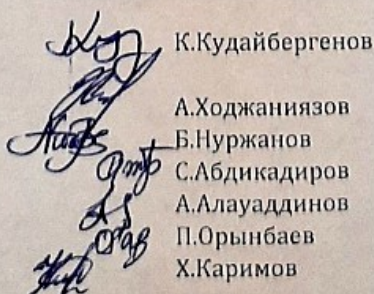 К.Кудайбергенов
А.Ходжаниязов
Б.Нуржанов
С.Абдикадиров
А.Алауаддинов
П.Орынбаев
Х.Каримов